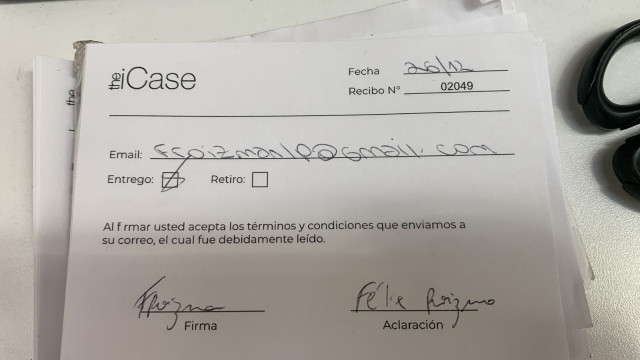 the iCase
Fecha 26/12
Recibo N° 02049
Email:
Entrego: Retiro:
Al f rmar usted acepta los términos y condiciones que enviamos a
su correo, el cual fue debidamente leído.
Firma
Félix
Aclaración